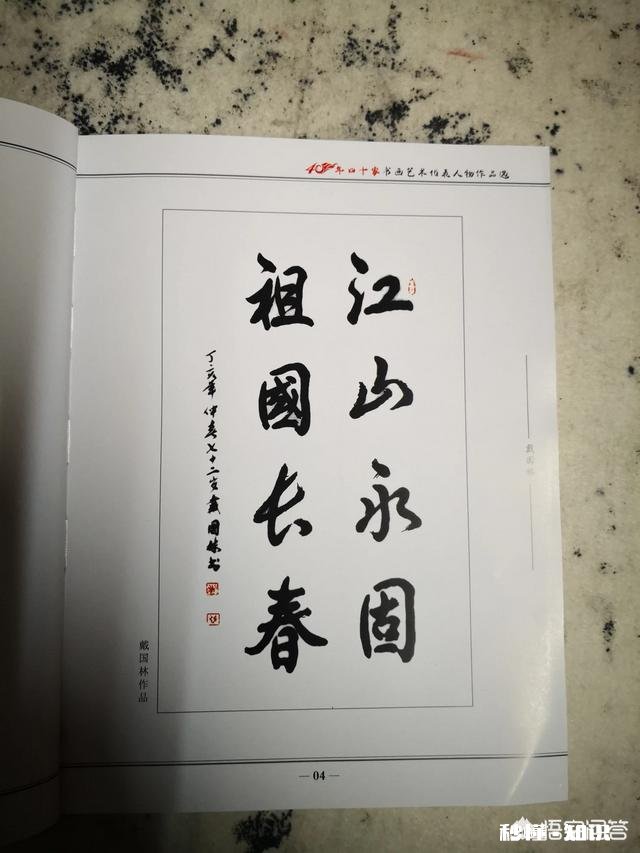 40年四十家书画艺术代表人物作品选
江山永固
祖國长春
丁亥年仲春七十二岁戴国林书
戴国林
戴国林作品
— 04 —
秒懂·知识
悟空问答